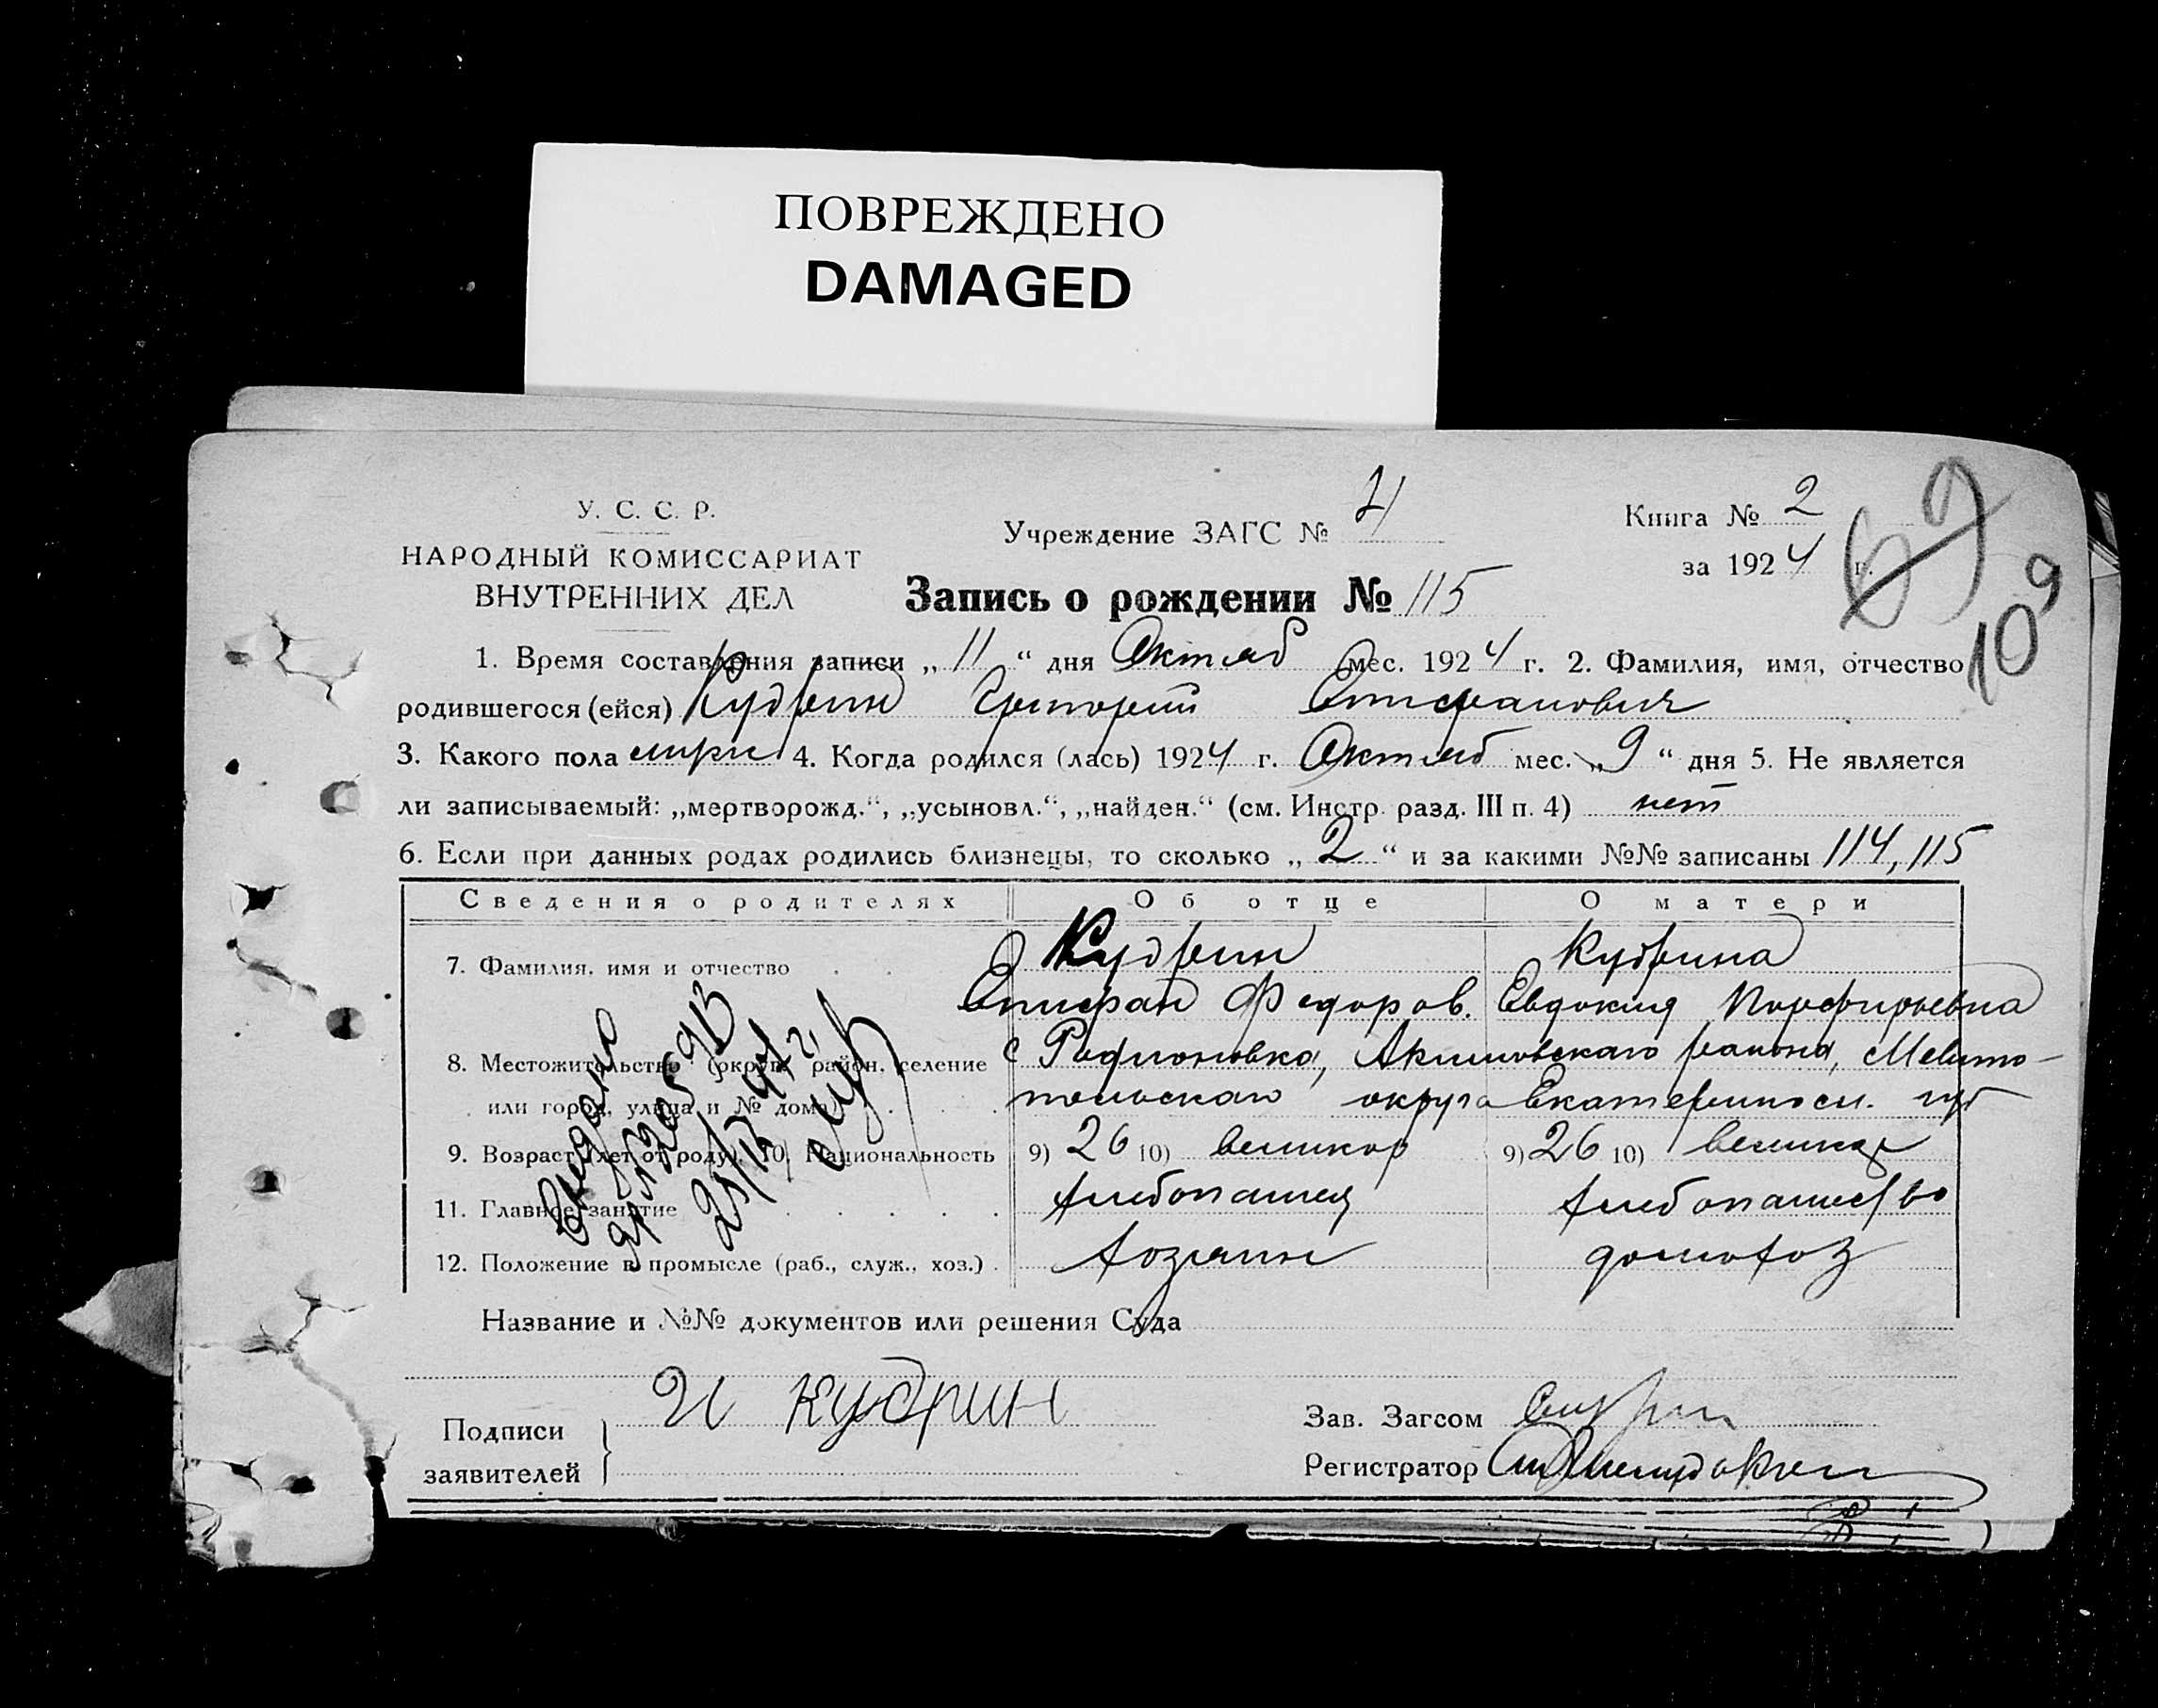 ПОВРЕЖДЕНО
DAMAGED
У. С. С. Р.
НАРОДНЫЙ КОМИССАРИАТ
ВНУТРЕННИХ ДЕЛ
Учреждение ЗАГС №
Книга № 2
за 1924 г.
69
109
Запись о рождении № 115
1. Время составления записи „11“ дня Октяб мес. 1924 г. 2. Фамилия, имя, отчество
родившегося (ейся) Кудрин Григорий Епифанович
3. Какого пола 4. Когда родился (лась) 1924 г. Октяб мес. „9“ дня 5. Не является
ли записываемый: „мертворожд.“, „усыновл.“, „найден.“ (см. Инстр. разд. III п. 4) нет
6. Если при данных родах родились близнецы, то сколько „2“ и за какими №№ записаны 114, 115
Сведения о родителях Об отце О матери
7. Фамилия, имя и отчество Кудрин Кудрина
Епифан Федоров. Евдокия Порфирьевна
8. Местожительство (округ, район, селение с Родионовка, Акимовскаго района, Мелито-
или город, улица и № дома) польскаго округа Екатериносл. губ
9. Возраст (лет от роду). 10. Национальность 9) 26 10) великор 9) 26 10) великор
11. Главное занятие хлебопашец хлебопашество
12. Положение в промысле (раб., служ., хоз.) хозяин домохоз
Название и №№ документов или решения Суда
Подписи
заявителей
И Кудрин
Зав. Загсом
Регистратор